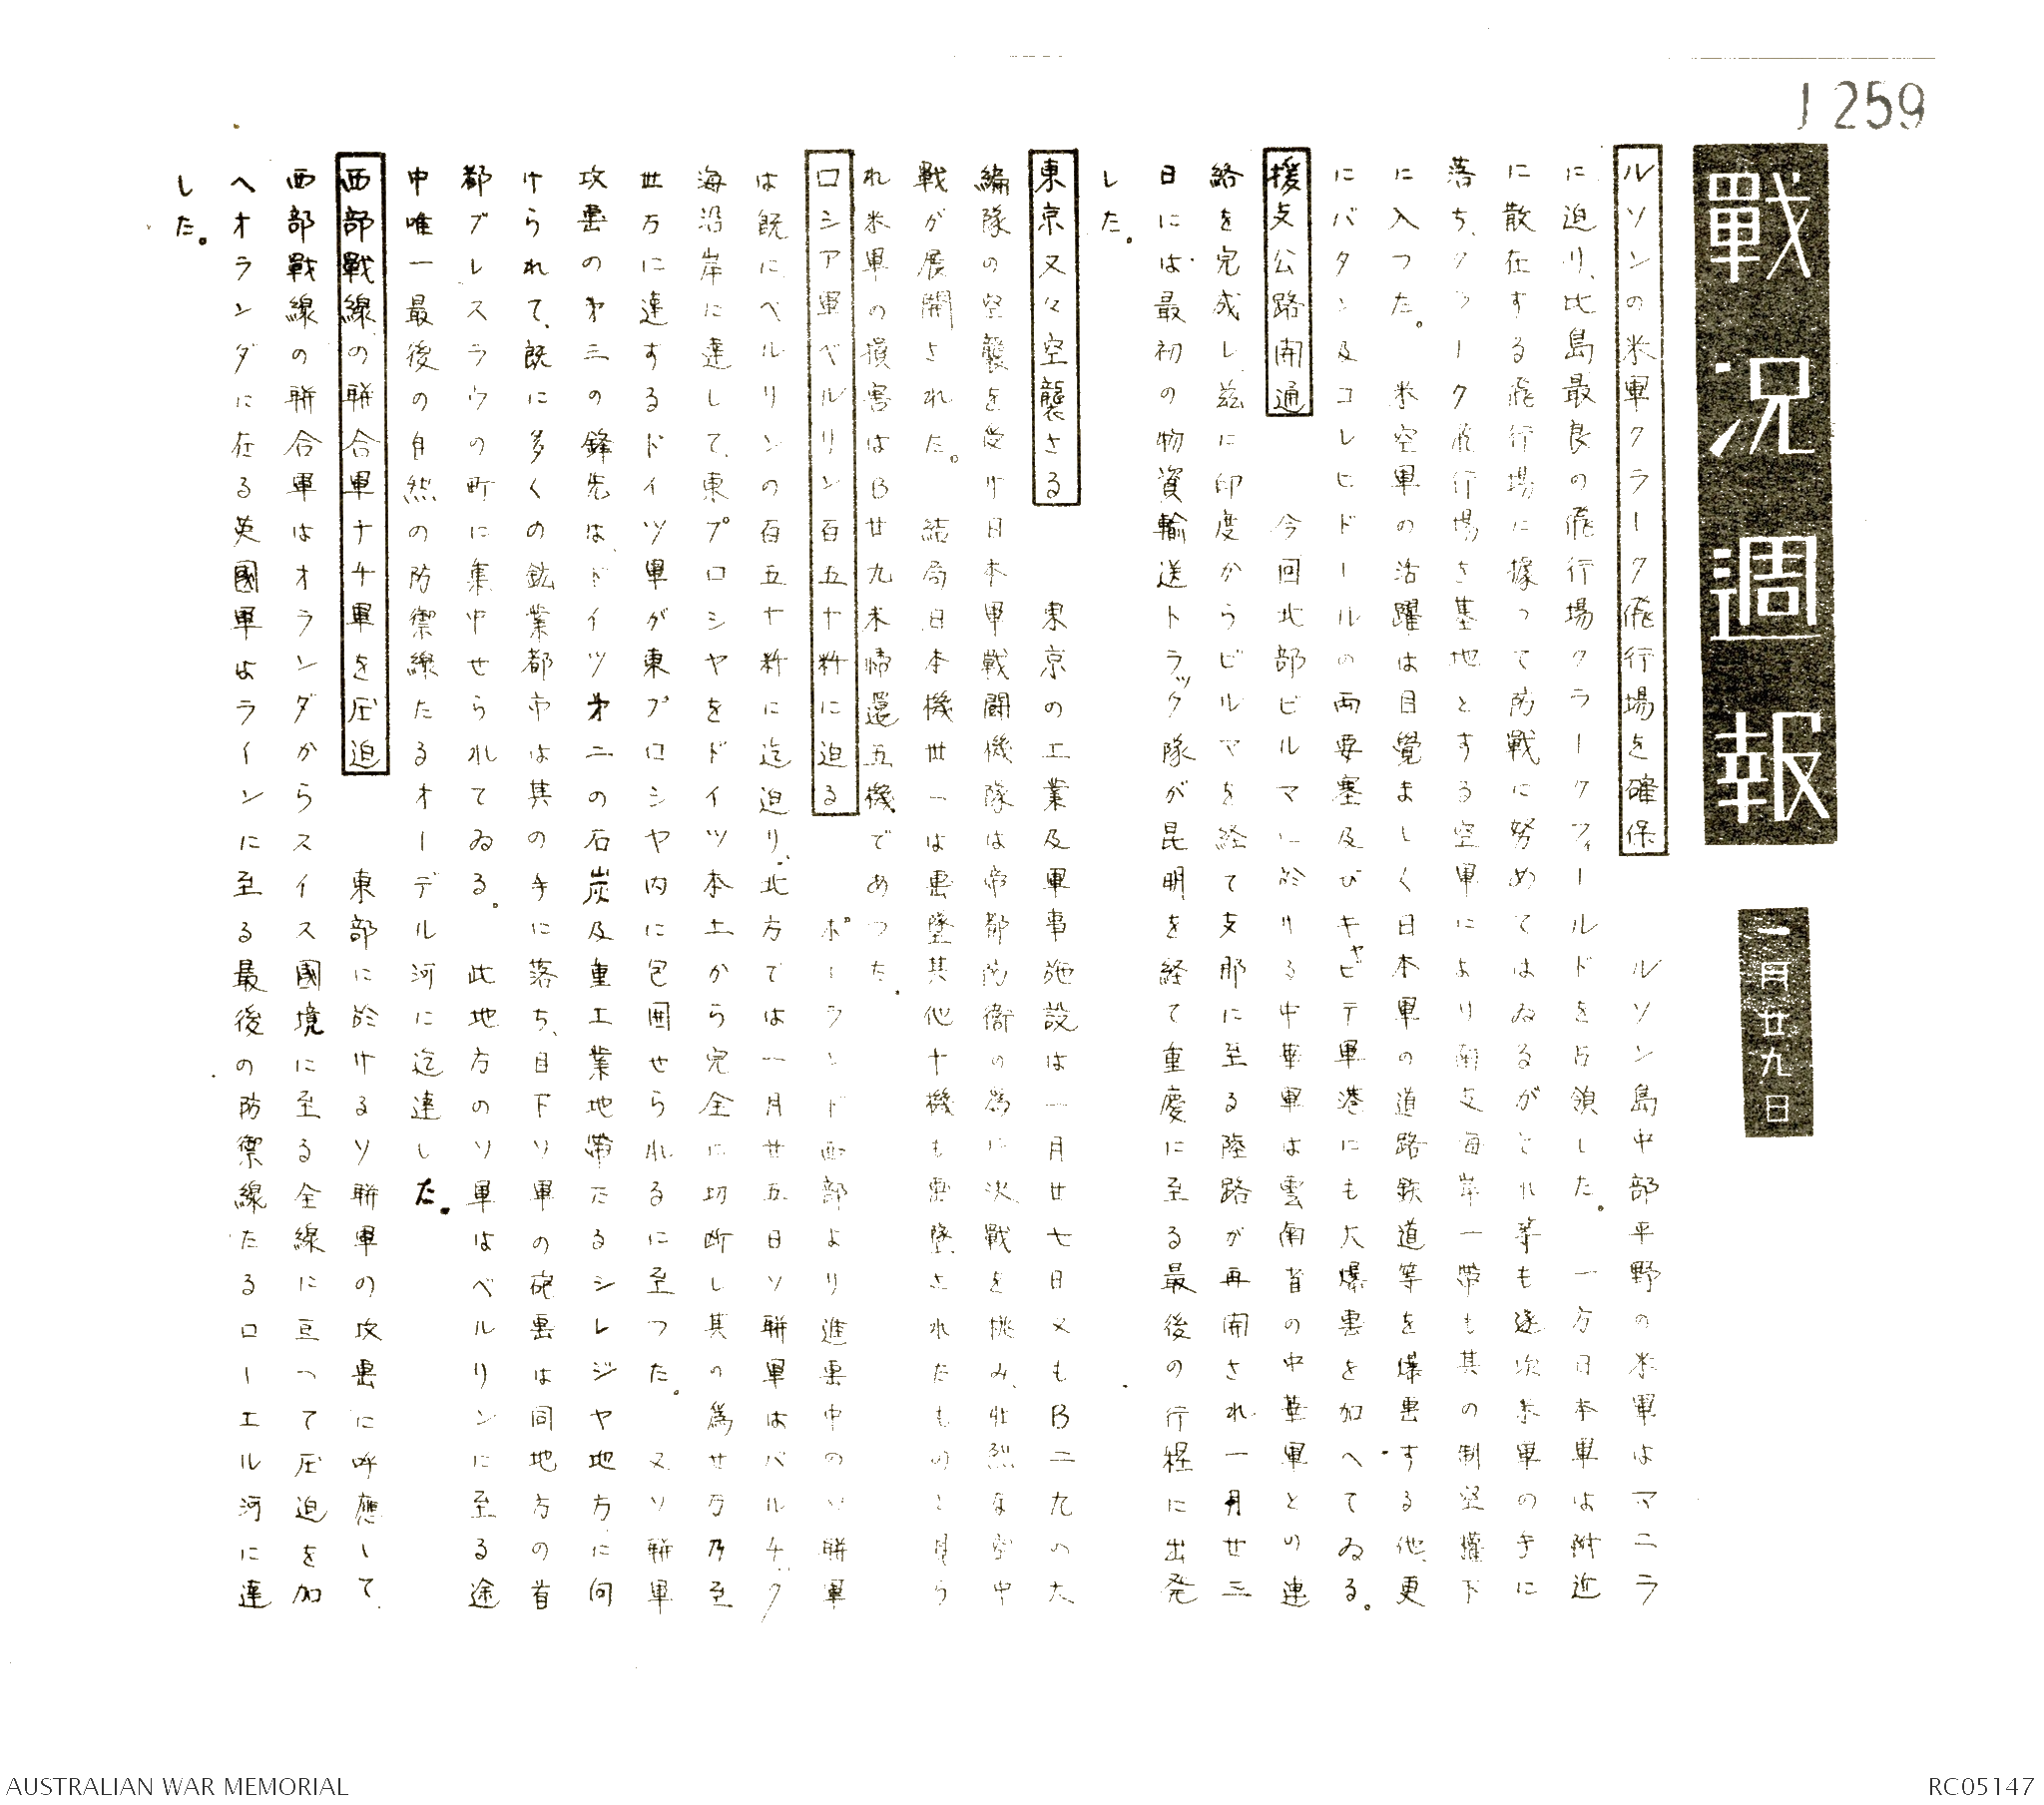 J 259
戰況週報
一月廿九日
ルソンの米軍クラーク飛行場を確保 ルソン島中部平野の米軍はマニラ
に迫り、比島最良の飛行場クラークフィールドを占領した。 一方日本軍は附近
に散在する飛行場に據つて防戦に努めてはゐるがこれ等も逐次米軍の手に
落ち、クラーク飛行場を基地とする空軍により南支海岸一帯も其の制空權下
に入つた。 米空軍の活躍は目覺ましく日本軍の道路鉄道等を爆撃する他、更
にバタン及コレヒドールの両要塞及びキャビテ軍港にも大爆撃を加へてゐる。
援支公路開通 今回北部ビルマに於ける中華軍は雲南省の中華軍との連
絡を完成し、茲に印度からビルマを経て支那に至る陸路が再開され一月廿三
日には最初の物資輸送トラック隊が昆明を経て重慶に至る最後の行程に出発
した。
東京又々空襲さる 東京の工業及軍事施設は一月廿七日又もB二九の大
編隊の空襲を受け日本軍戦闘機隊は帝都防衛の為に決戰を挑み、壮烈な空中
戦が展開された。 結局日本機世一は撃墜其他十機も撃墜されたものと見ら
れ米軍の損害はB廿九未帰還五機であつた.
ロシア軍ベルリン百五十粁に迫る ポーランド西部より進撃中のソ聯軍
は既にベルリンの百五十粁に迄迫り、北方では一月廿五日ソ聯軍はバルチク
海沿岸に達して、東プロシヤをドイツ本土から完全に切断し其の為廿万乃至
世万に達するドイツ軍が東プロシヤ内に包囲せられるに至つた。 又ソ聯軍
攻撃のオ三の鋒先は、ドイツオ二の石炭及重工業地帯たるシレジヤ地方に向
けられて、既に多くの鉱業都市は其の手に落ち、目下ソ軍の砲撃は同地方の首
都ブレスラウの町に集中せられてゐる。 此地方のソ軍はベルリンに至る途
中唯一最後の自然の防禦線たるオーデル河に迄達した。
西部戰線の聯合軍ナチ軍を圧迫 東部に於けるソ聯軍の攻撃に呼應して、
西部戰線の聯合軍はオランダからスイス國境に至る全線に亘つて圧迫を加
へオランダに在る英國軍はラインに至る最後の防禦線たるローエル河に達
した。
AUSTRALIAN WAR MEMORIAL
RC05147